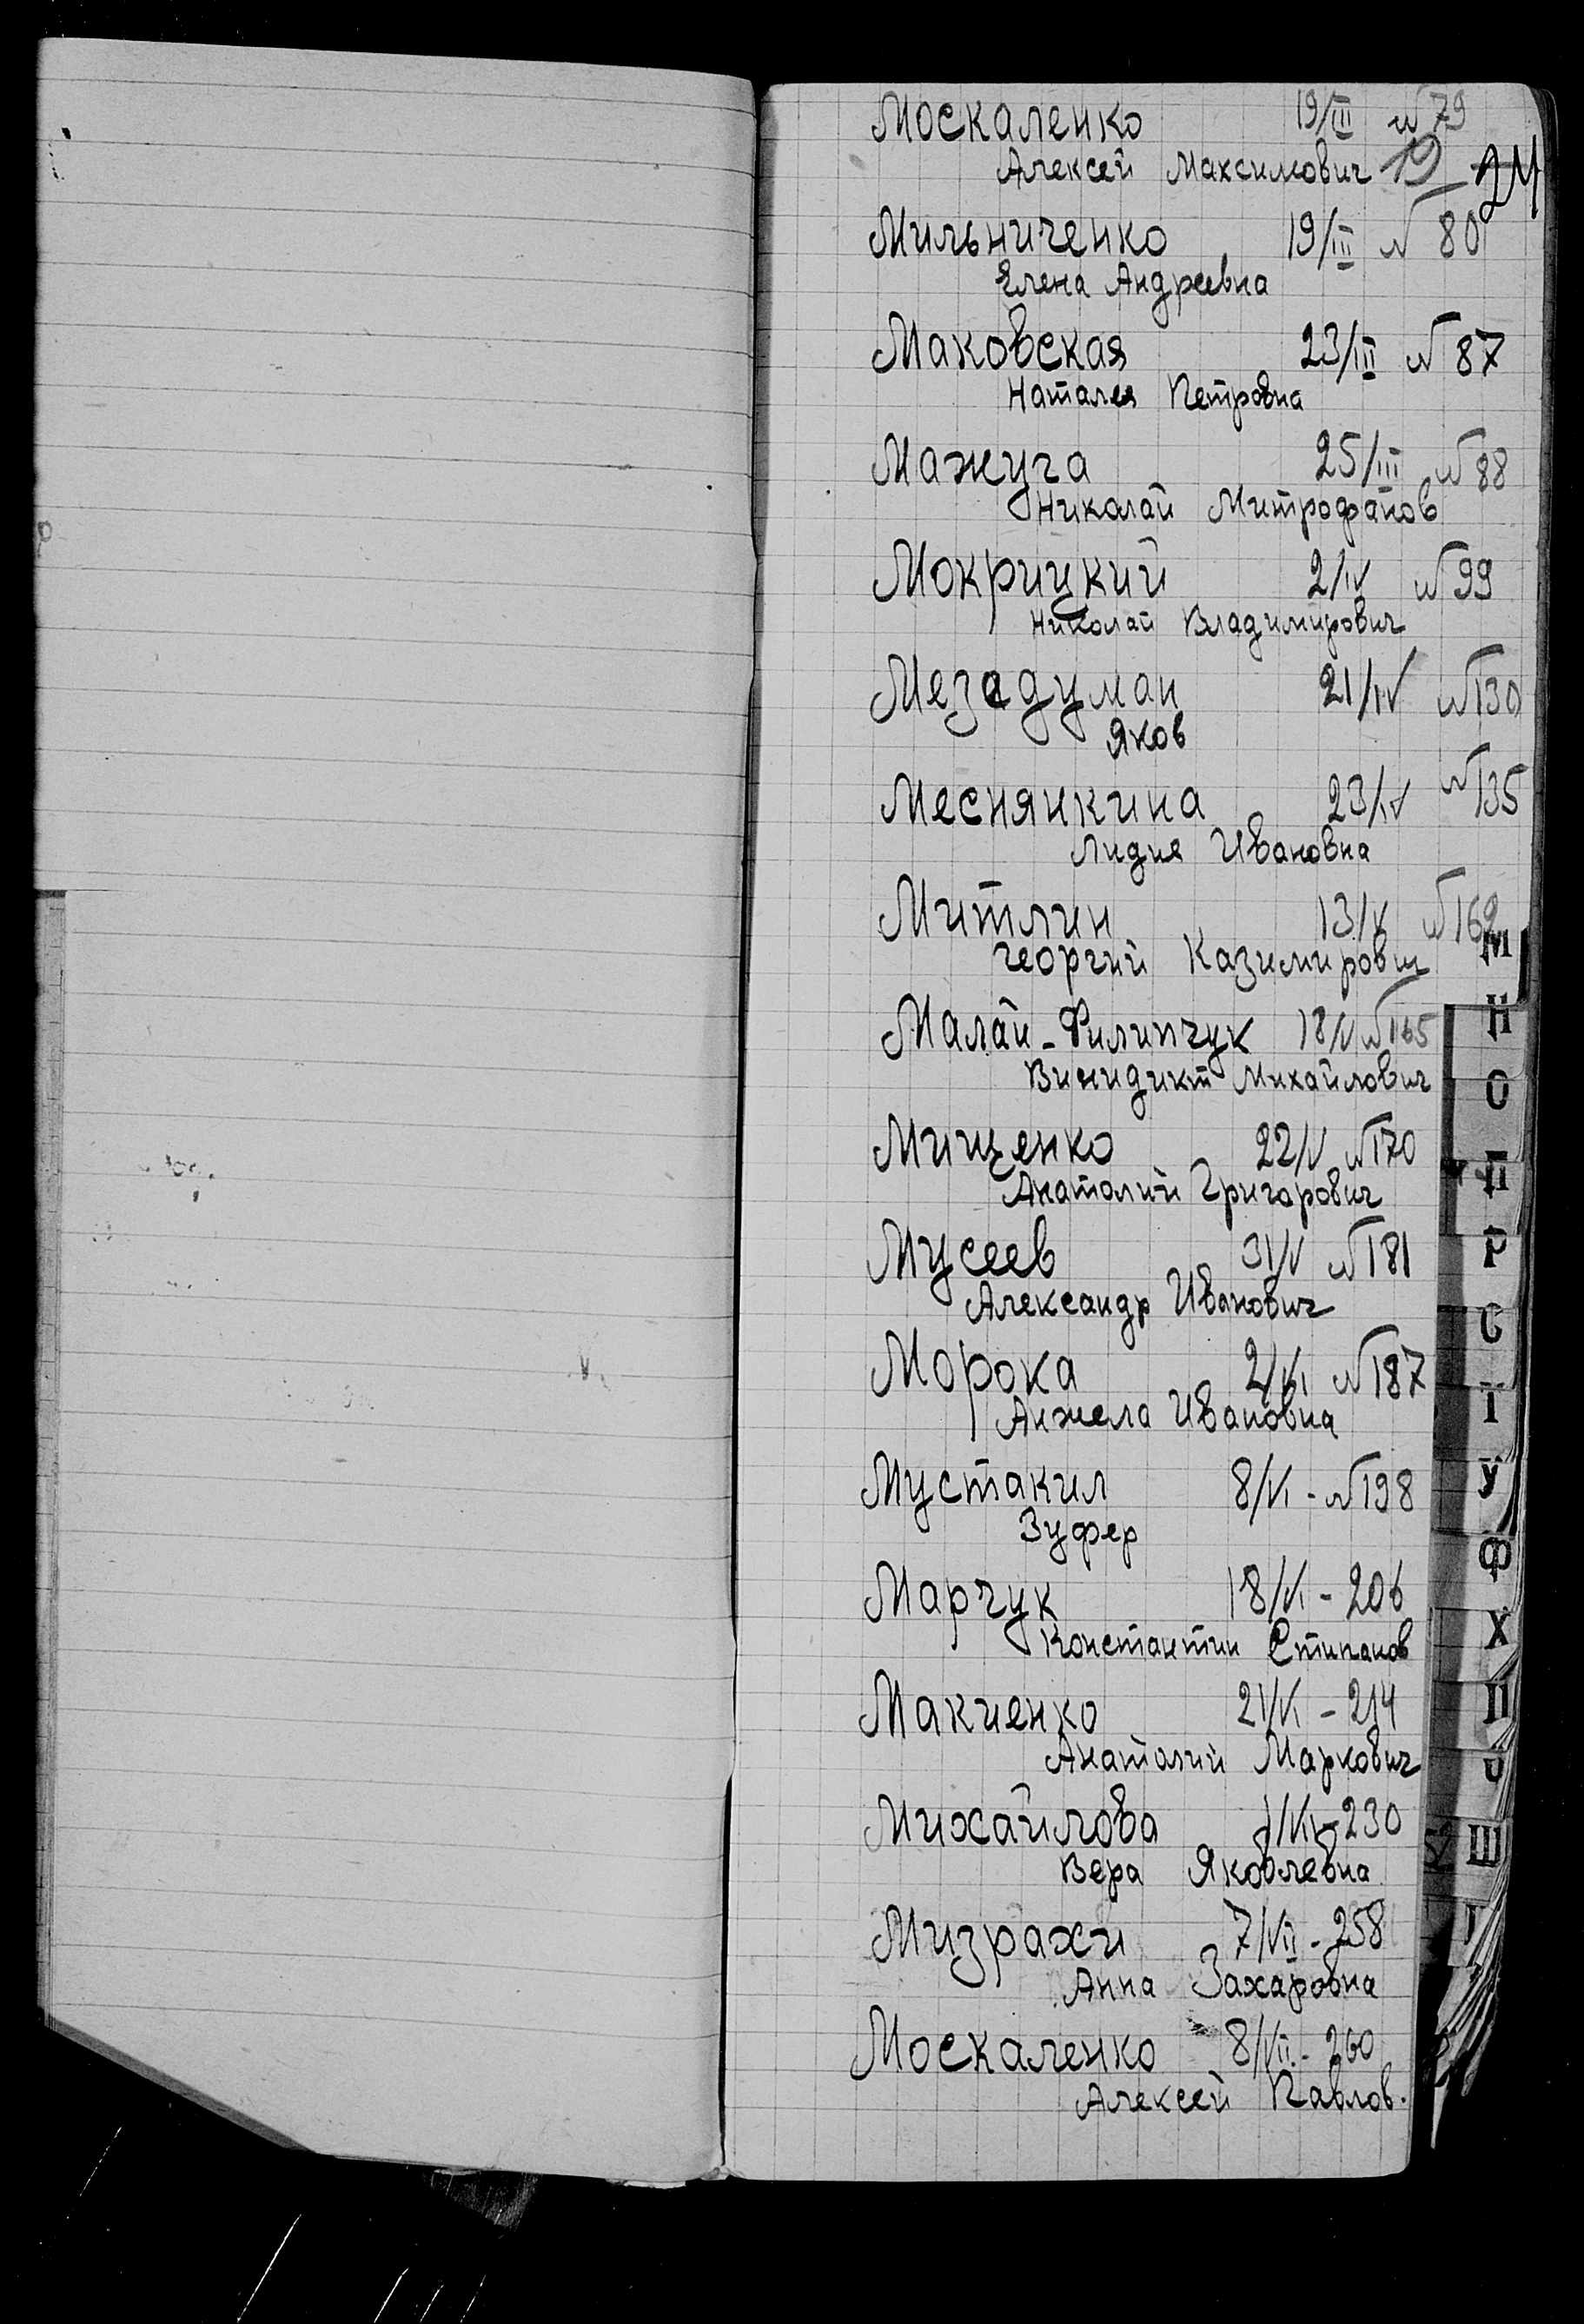 Москаленко 19/III №79
Алексей Максимович 19 24
Мильниченко 19/III № 80
Елена Андреевна
Маковская 23/III № 87
Наталея Петровна
Мажуга 25/III № 88
Николай Митрофанов
Мокрицкий 2/IV №99
Николай Владимирович
Мезадуман 21/IV №130
Яков
Меснянкина 23/IV №135
Лидия Ивановна
Митлин 13/V №162
Георгий Казимирович
Малай-Филипчук 18/V №165
Винидикт Михайлович
Мищенко 22/V №170
Анаталий Григорович
Мусеев 31/V №181
Александр Иванович
Морока 2/VI №187
Анжела Ивановна
Мустакил 8/VI - №198
Зуфер
Марчук 18/VI - 206
Константин Стипанов
Макиенко 21/VI - 214
Анаталий Маркович
Михайлова 230
Вера Яковлевна
Мизрахи 7/VII - 258
Анна Захаровна
Москаленко 8/VII - 260
Алексей Павлов.
М
Н
О
П
Р
С
Т
У
Ф
Х
Ц
Ч
Ш